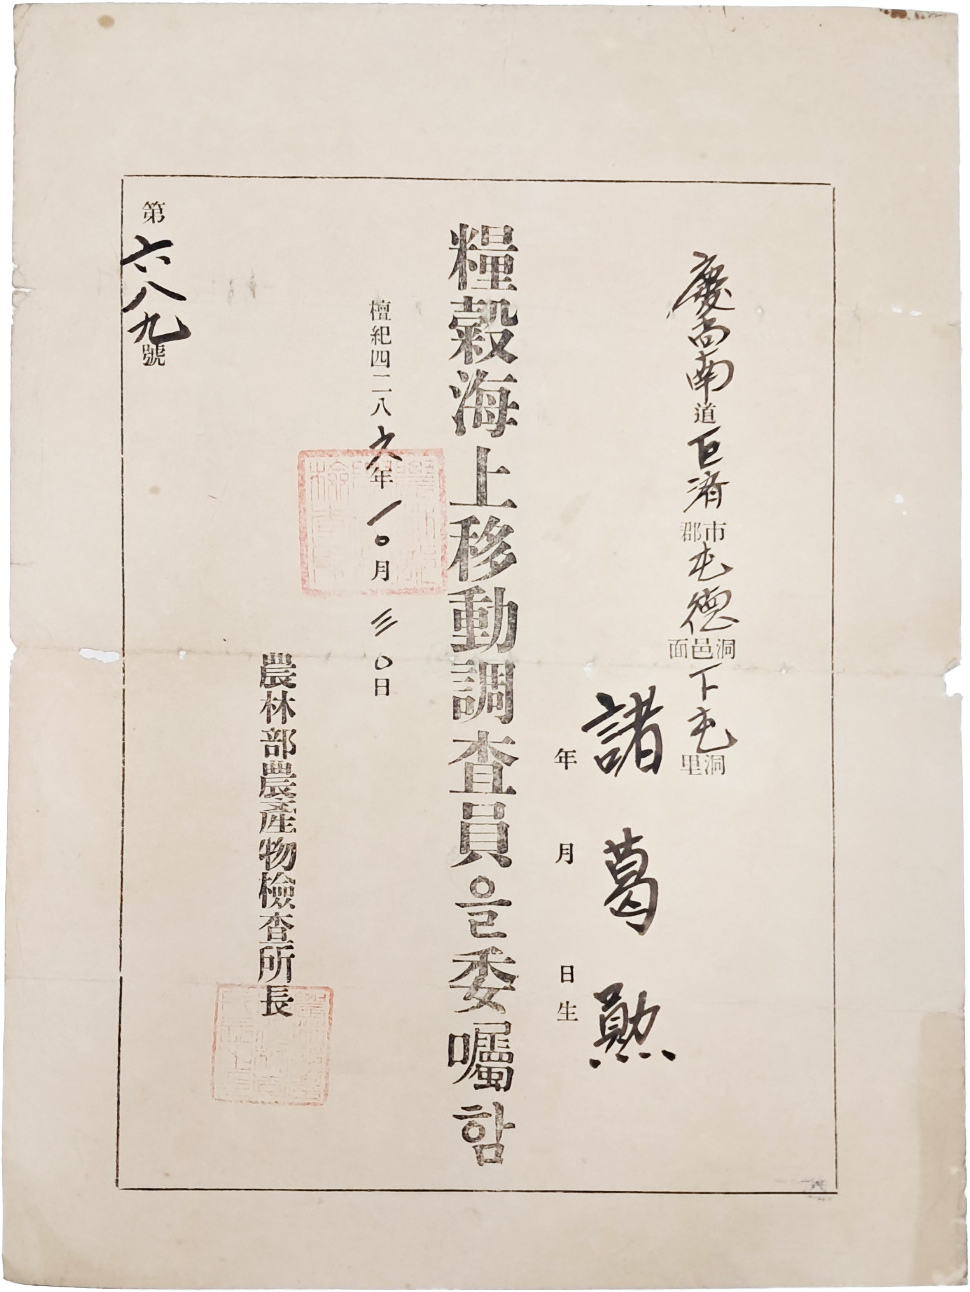 慶尚南道巨濟市郡屯德洞邑面下屯洞里
諸葛勲
年月日生
糧穀海上移動調査員을委囑함
檀紀四二八六年一〇月三〇日
農林部農產物檢查所長
第六八九號